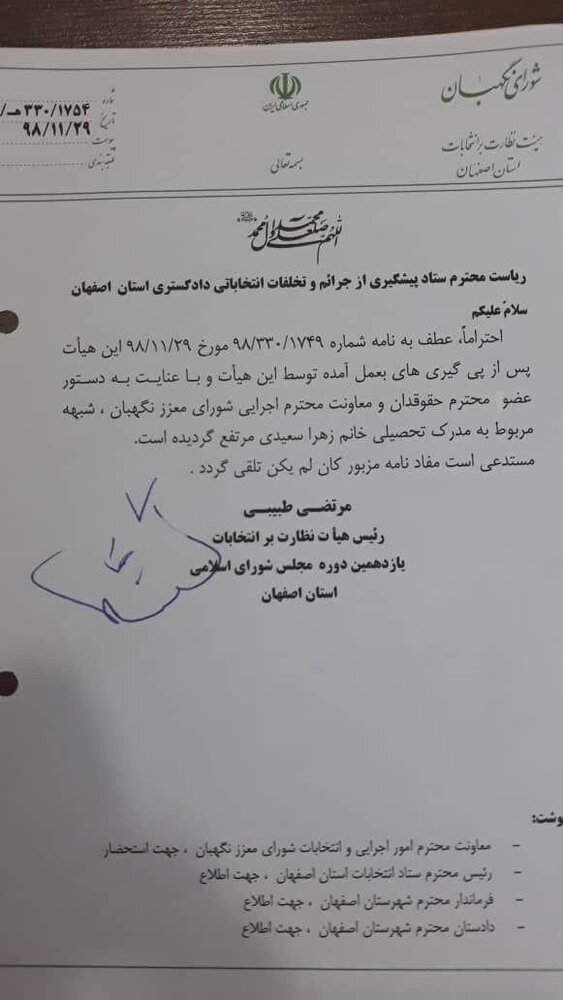 شورای نگهبان
هیئت نظارت بر انتخابات
استان اصفهان
جمهوری اسلامی ایران
بسمه تعالی
شماره ۳۳۰/۱۷۵۴ هـ/
تاریخ ۹۸/۱۱/۲۹
پیوست
طبقه بندی
اللهم صل علی محمد و آل محمد
ریاست محترم ستاد پیشگیری از جرائم و تخلفات انتخاباتی دادگستری استان اصفهان
سلام علیکم
احتراماً، عطف به نامه شماره ۹۸/۳۳۰/۱۷۴۹ مورخ ۹۸/۱۱/۲۹ این هیأت
پس از پی گیری های بعمل آمده توسط این هیأت و با عنایت به دستور
عضو محترم حقوقدان و معاونت محترم اجرایی شورای معزز نگهبان ، شبهه
مربوط به مدرک تحصیلی خانم زهرا سعیدی مرتفع گردیده است.
مستدعی است مفاد نامه مزبور کان لم یکن تلقی گردد .
مرتضی طبیبی
رئیس هیأت نظارت بر انتخابات
یازدهمین دوره مجلس شورای اسلامی
استان اصفهان
وشت:
- معاونت محترم امور اجرایی و انتخابات شورای معزز نگهبان ، جهت استحضار
- رئیس محترم ستاد انتخابات استان اصفهان ، جهت اطلاع
- فرماندار محترم شهرستان اصفهان ، جهت اطلاع
- دادستان محترم شهرستان اصفهان ، جهت اطلاع